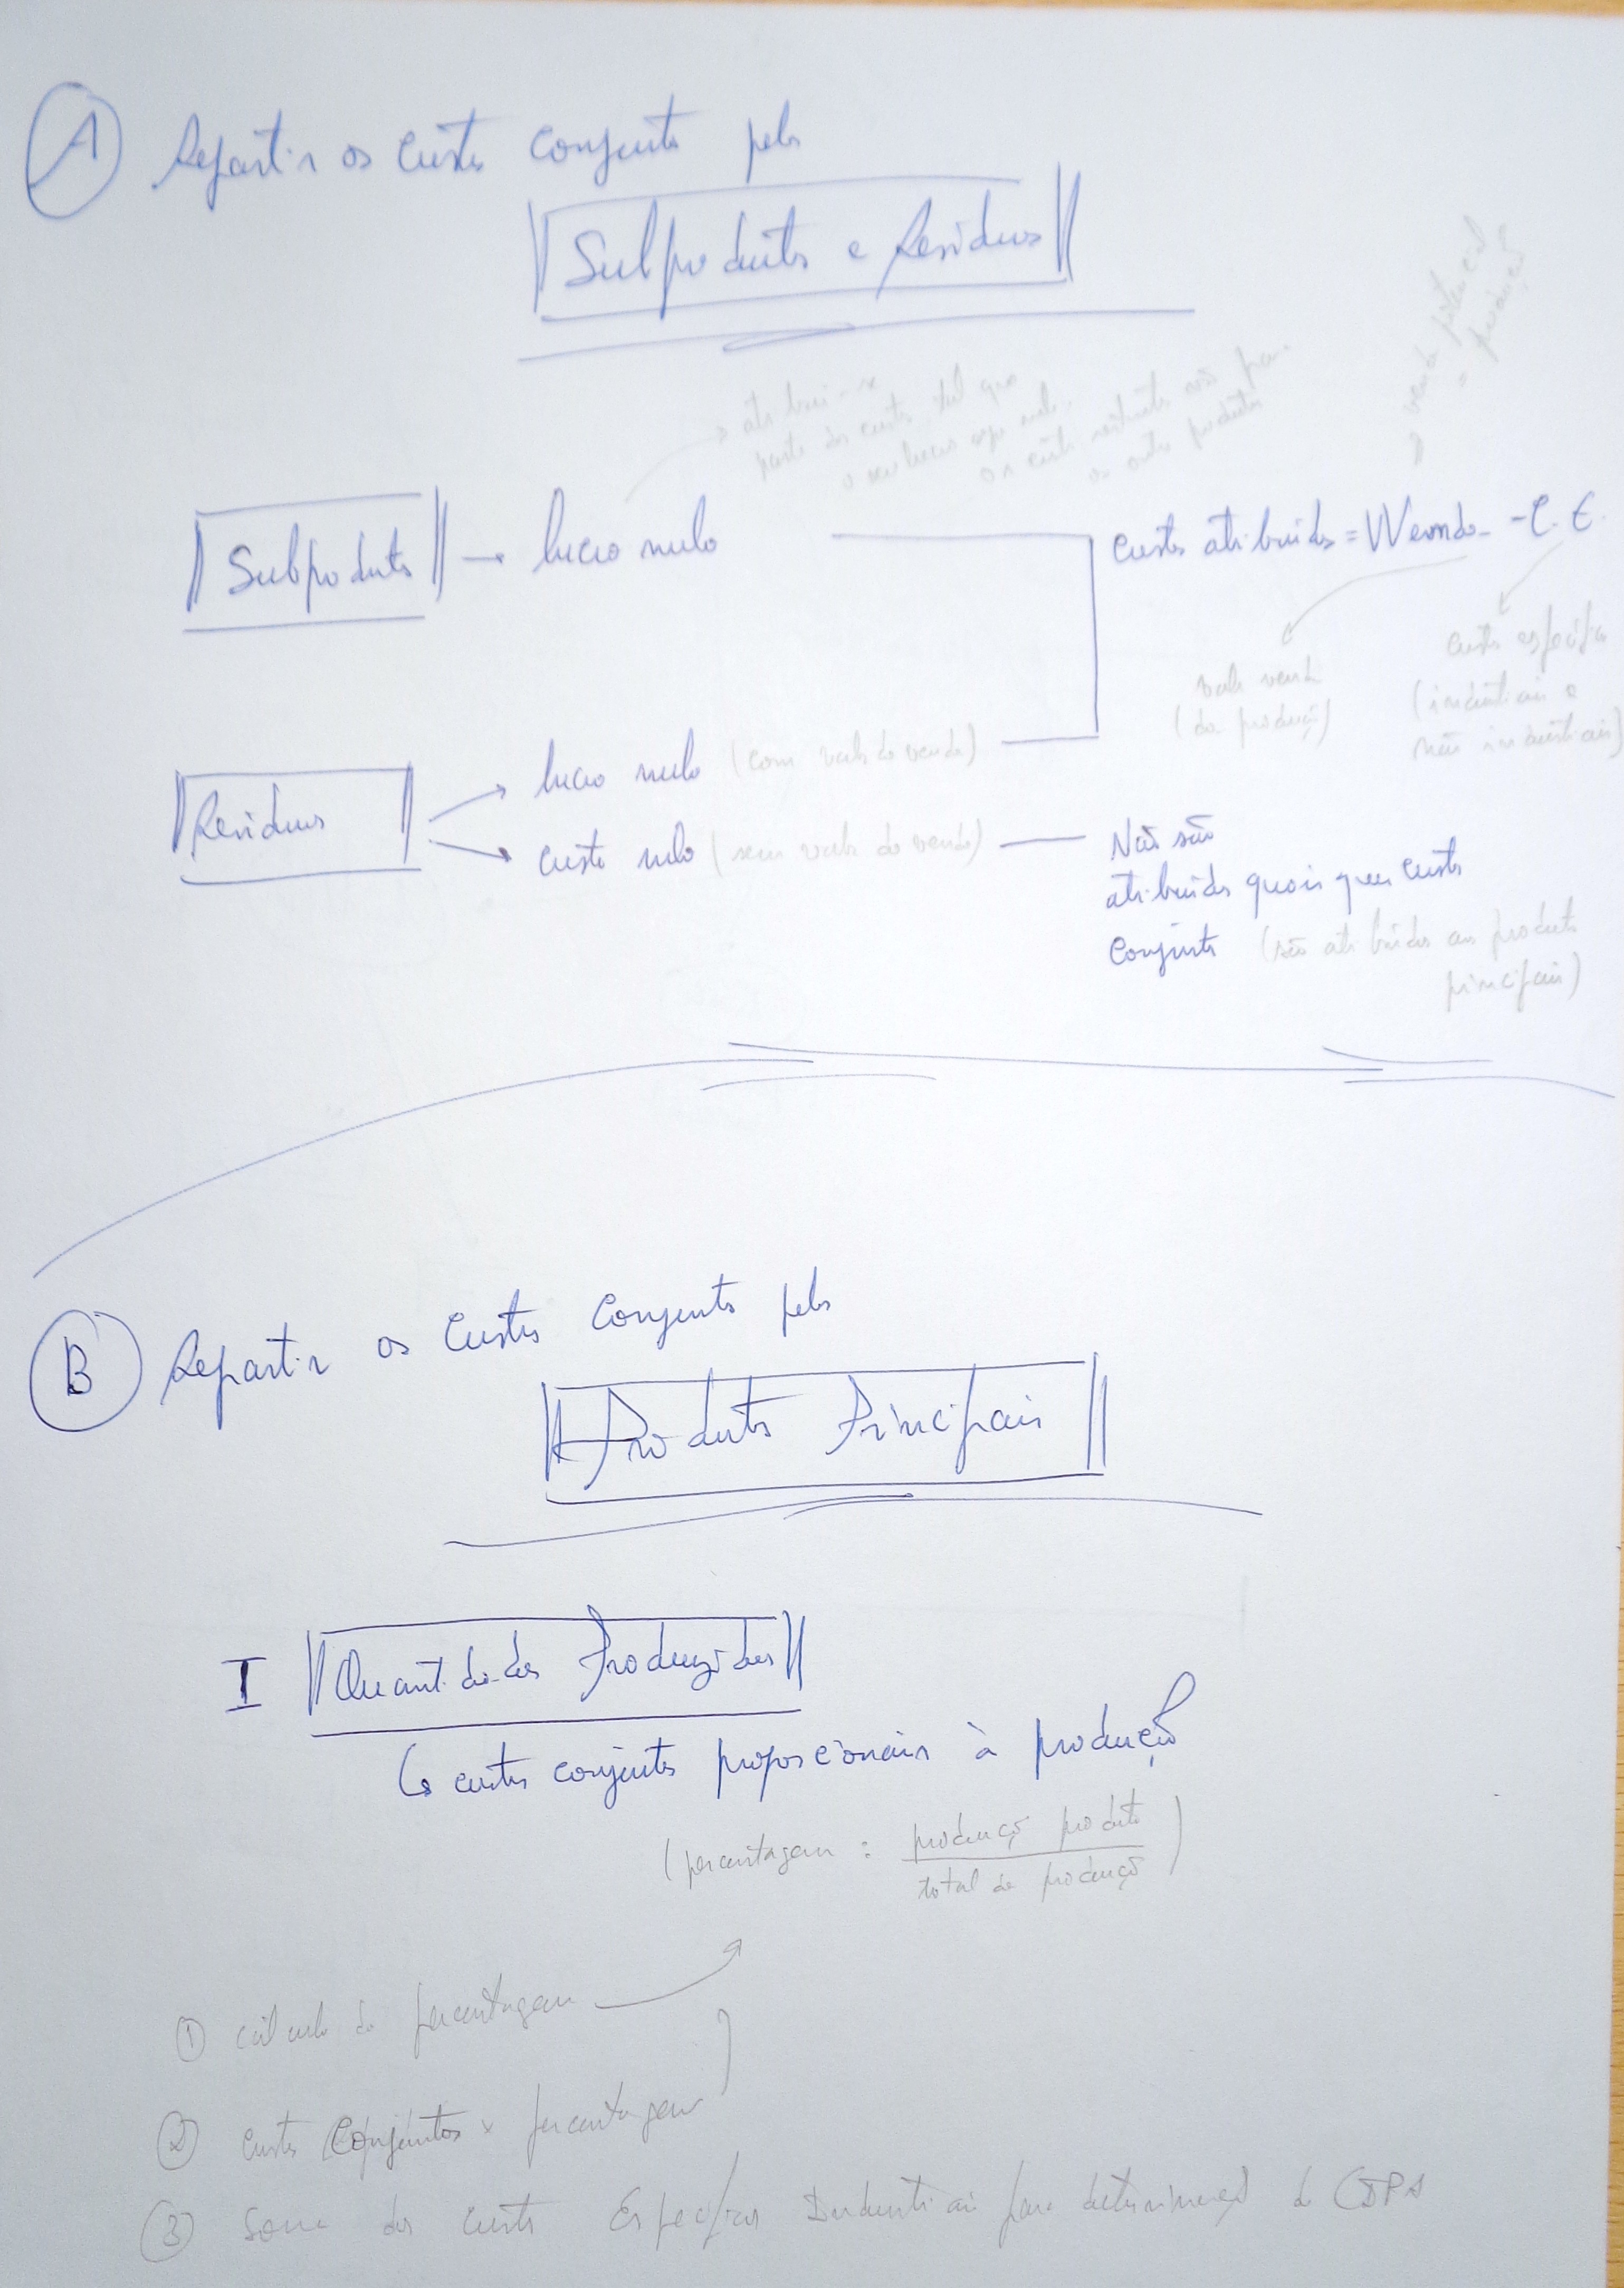 A Repartir os custos conjuntos pelos
Subprodutos e Resíduos
venda potencial
= produção
atribui-se
parte dos custos tal que
o seu lucro seja nulo.
os custos restantes vão para
os outros produtos
Subprodutos → lucro nulo
Custos atribuídos = VVenda - C.E.
valor venda
(da produção)
custos específicos
(industriais e
não industriais)
Resíduos
lucro nulo (com valor de venda)
custo nulo (sem valor de venda)
Não são
atribuídos quaisquer custos
conjuntos (são atribuídos aos produtos
principais)
B Repartir os custos conjuntos pelos
Produtos Principais
I Quantidades Produzidas
↳ custos conjuntos proporcionais à produção
(percentagem = produção produto
total da produção)
① cálculo da percentagem
② custos conjuntos x percentagem
③ Soma dos custos Específicos Industriais para determinação do CIPA